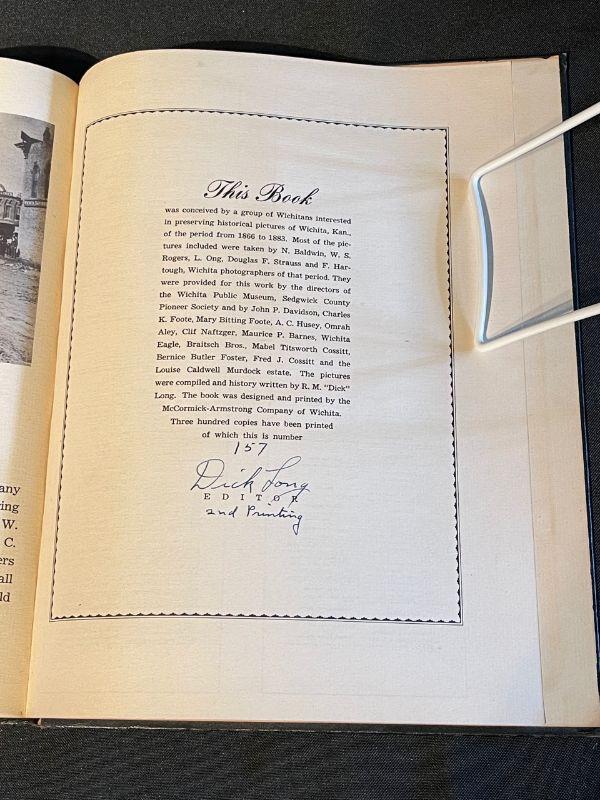 This Book
was conceived by a group of Wichitans interested
in preserving historical pictures of Wichita, Kan.,
of the period from 1866 to 1883. Most of the pic-
tures included were taken by N. Baldwin, W. S.
Rogers, L. Ong, Douglas F. Strauss and F. Har-
tough, Wichita photographers of that period. They
were provided for this work by the directors of
the Wichita Public Museum, Sedgwick County
Pioneer Society and by John P. Davidson, Charles
K. Foote, Mary Bitting Foote, A. C. Husey, Omrah
Aley, Clif Naftzger, Maurice P. Barnes, Wichita
Eagle, Braitsch Bros., Mabel Titsworth Cossitt,
Bernice Butler Foster, Fred J. Cossitt and the
Louise Caldwell Murdock estate. The pictures
were compiled and history written by R. M. "Dick"
Long. The book was designed and printed by the
McCormick-Armstrong Company of Wichita.
Three hundred copies have been printed
of which this is number
157
Dick Long
EDITOR
2nd Printing
any
W.
C.
all